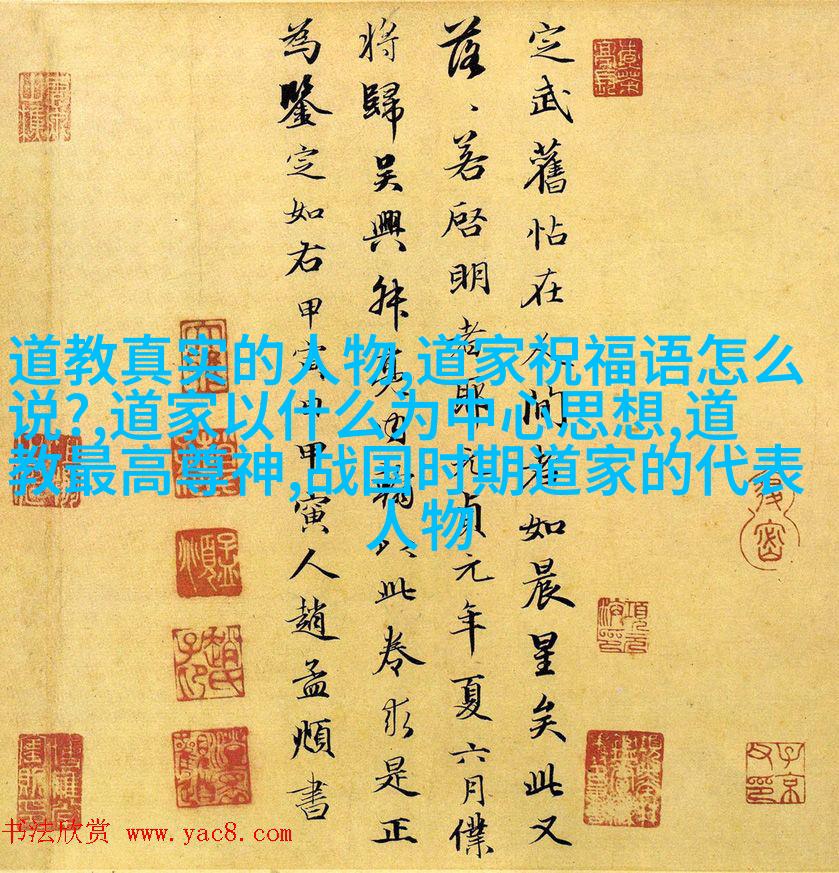 定武舊帖在人間者如晨星矣此又
落、若啓明者耶元貞元年夏六月僕
将歸吴興叔亮内翰以此卷求是正
為鑒定如右甲寅日甲寅人趙孟頫書
道教真实的人物,道家祝福语怎么
说?,道家以什么为中心思想,道
教最高尊神,战国时期道家的代表
人物
书法欣赏 www.yac8.com